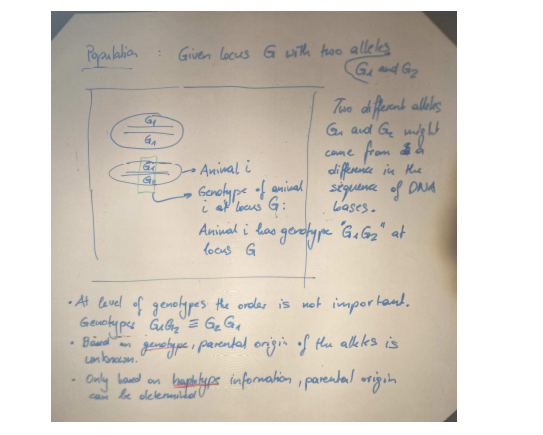 Population : Given locus G with two alleles
G1 and G2
G1
G1
G1
G2
→ Animal i
→ Genotype of animal
i at locus G:
Animal i has genotype "G1G2" at
locus G
Two different alleles
G1 and G2 might
come from a
difference in the
sequence of DNA
bases.
• At level of genotypes the order is not important.
Genotypes G1G2 ≡ G2G1
• Based on genotype, parental origin of the alleles is
unknown.
• Only based on haplotype information, parental origin
can be determined